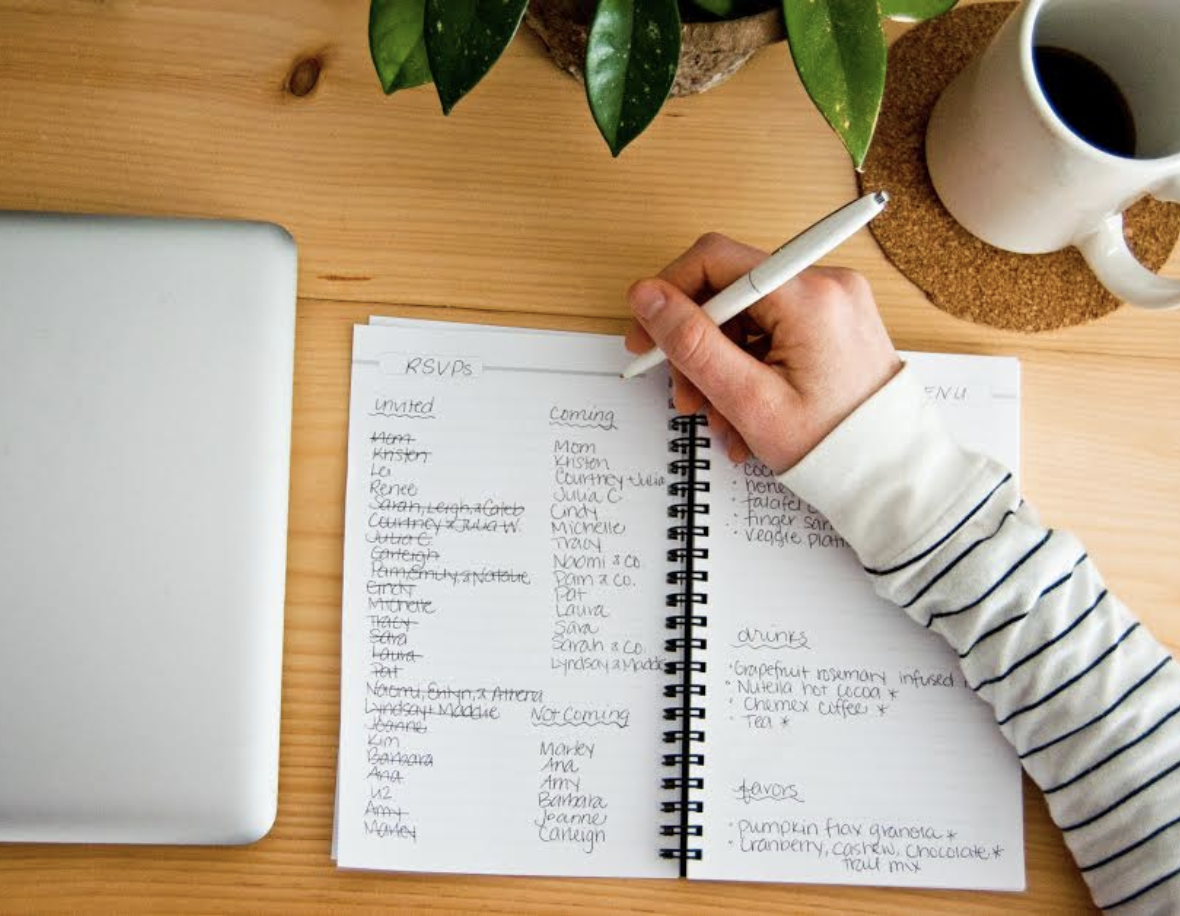 RSVPs
invited
Mom
Kristen
Lei
Renee
Sarah, Leigh, & Caleb
Courtney & Julia W.
Julia C.
Carleigh
Pam, Emily, & Natalie
Cindy
Michelle
Tracy
Sara
Laura
Pat
Naomi, Entyn, & Athena
Lyndsay + Maddie
Joanne
Kim
Barbara
Ana
Liz
Amy
Marley
coming
Mom
Kristen
Courtney + Julia
Julia C.
Cindy
Michelle
Tracy
Naomi & Co.
Pam & Co.
Pat
Laura
Sara
Sarah & Co.
Lyndsay & Madd
Not Coming
Marley
Ana
Amy
Barbara
Joanne
Carleigh
ENU
falafel
finger san
veggie platt
drinks
· Grapefruit rosemary infused
· Nutella hot cocoa *
· Chemex coffee *
· Tea *
favors
· pumpkin flax granola *
· Cranberry, cashew, chocolate *
trail mix